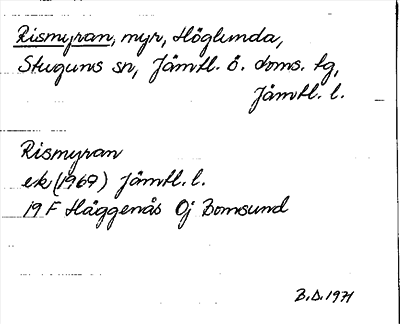 Rismyran, myr, Höglunda,
Stuguns sn, Jämtl. ö. doms. tg,
Jämtl. l.
Rismyran
ek (1969) Jämtl. l.
19 F Häggenås 0j Bomsund
B.D. 1971